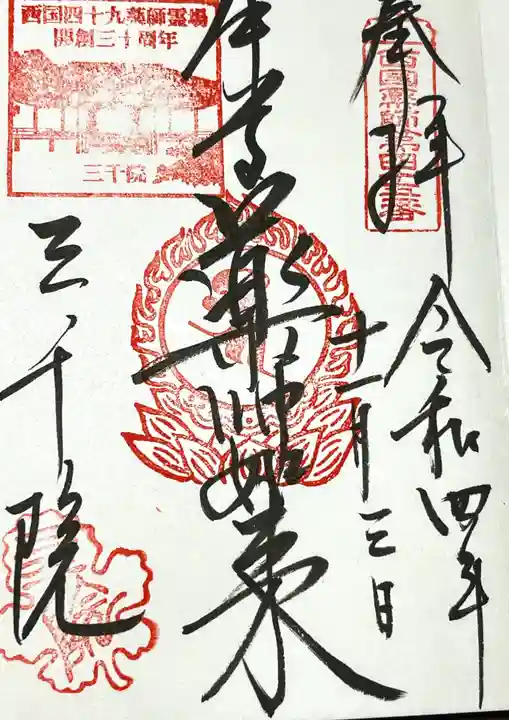 奉拝
西国薬師第四十五番
令和四年
十一月三日
本尊
薬師如来
三千院
西国四十九薬師霊場
開創三十周年
三千院